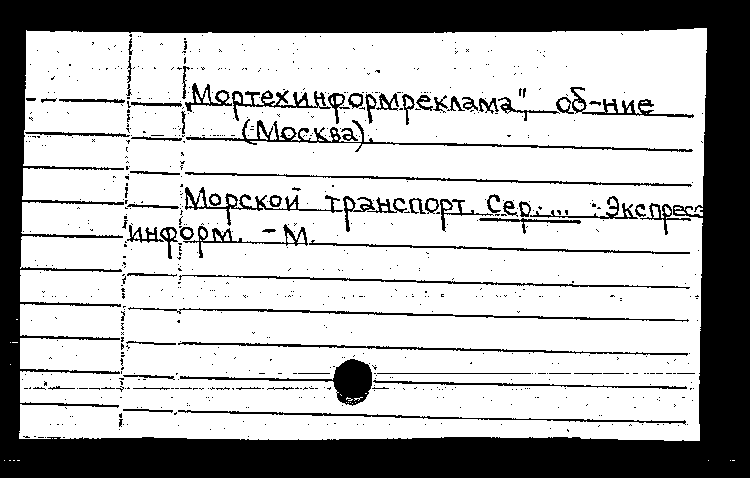 "Мортехинформреклама", об-ние
(Москва).
Морской транспорт. Сер.: ... : Экспресс
информ. - М.